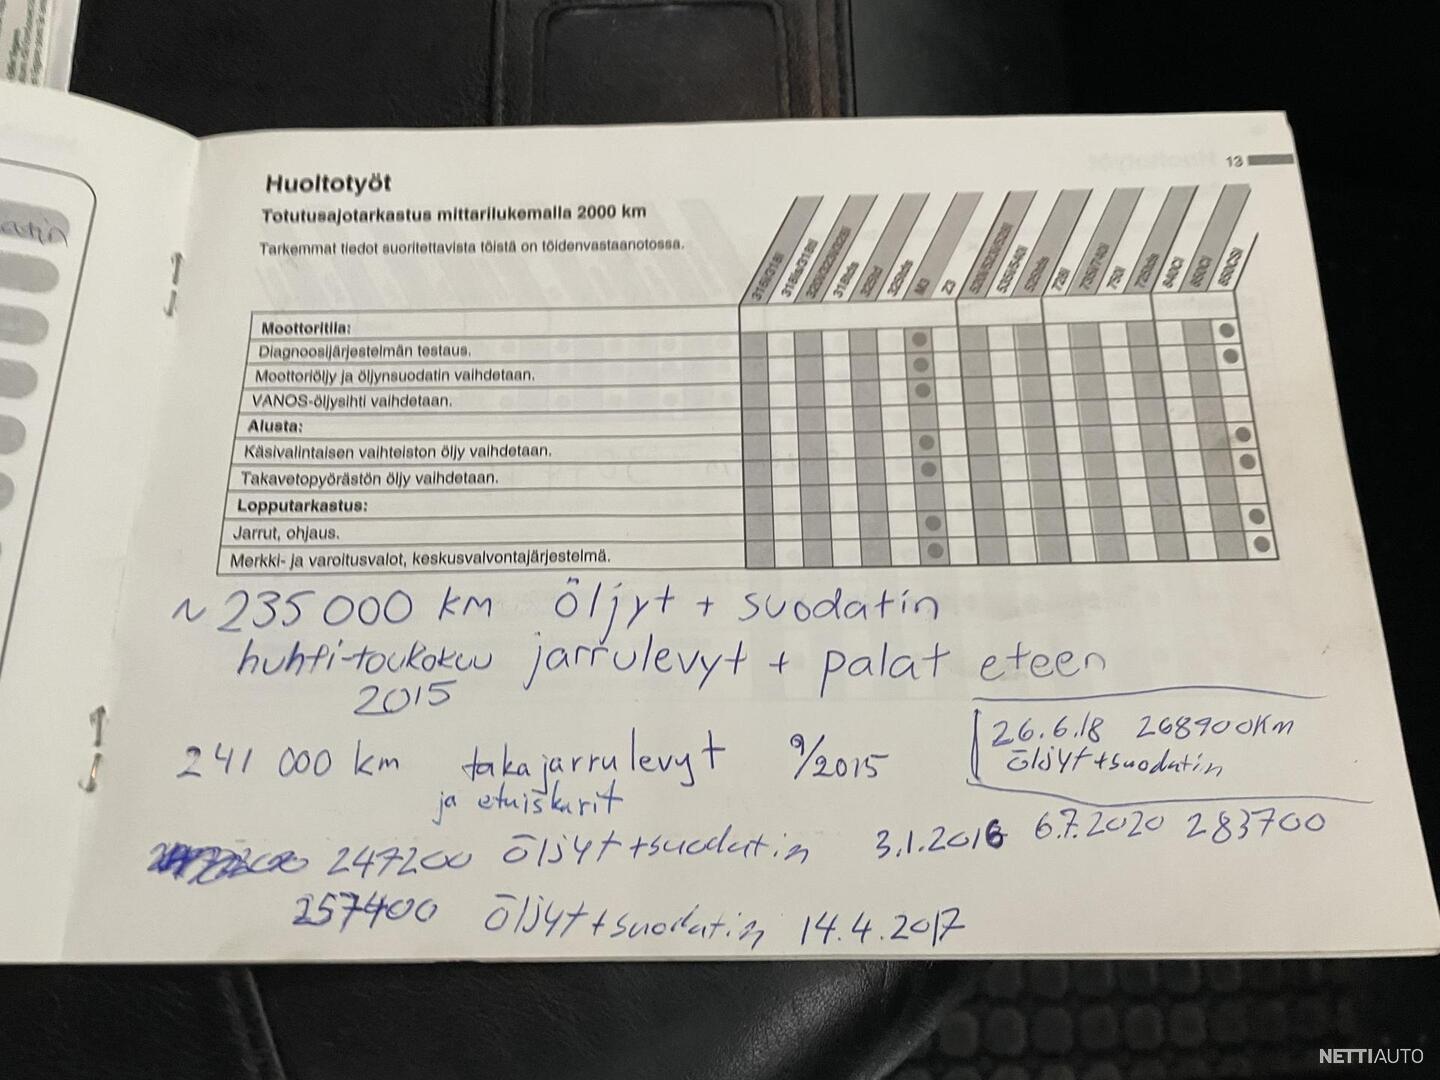 atin
13
Huoltotyöt
Totutusajotarkastus mittarilukemalla 2000 km
Tarkemmat tiedot suoritettavista töistä on töidenvastaanotossa.
316i/318i
318is/318ti
320i/323i/328i
318tds
325td
325tds
M3
Z3
520i/523i/528i
535i/540i
525tds
728i
735i/740i
750i
725tds
840Ci
850Ci
850CSi
Moottoritila:
Diagnoosijärjestelmän testaus.
Moottoriöljy ja öljynsuodatin vaihdetaan.
VANOS-öljysihti vaihdetaan.
Alusta:
Käsivalintaisen vaihteiston öljy vaihdetaan.
Takavetopyörästön öljy vaihdetaan.
Lopputarkastus:
Jarrut, ohjaus.
Merkki- ja varoitusvalot, keskusvalvontajärjestelmä.
~ 235 000 km öljyt + suodatin
huhti-toukokuu jarrulevyt + palat eteen
2015
26.6.18 268900km
öljyt+suodatin
241 000 km takajarrulevyt 9/2015
ja etuiskarit
247200 öljyt+suodatin 3.1.2016
6.7.2020 283700
257400 öljyt+suodatin 14.4.2017
NETTIAUTO